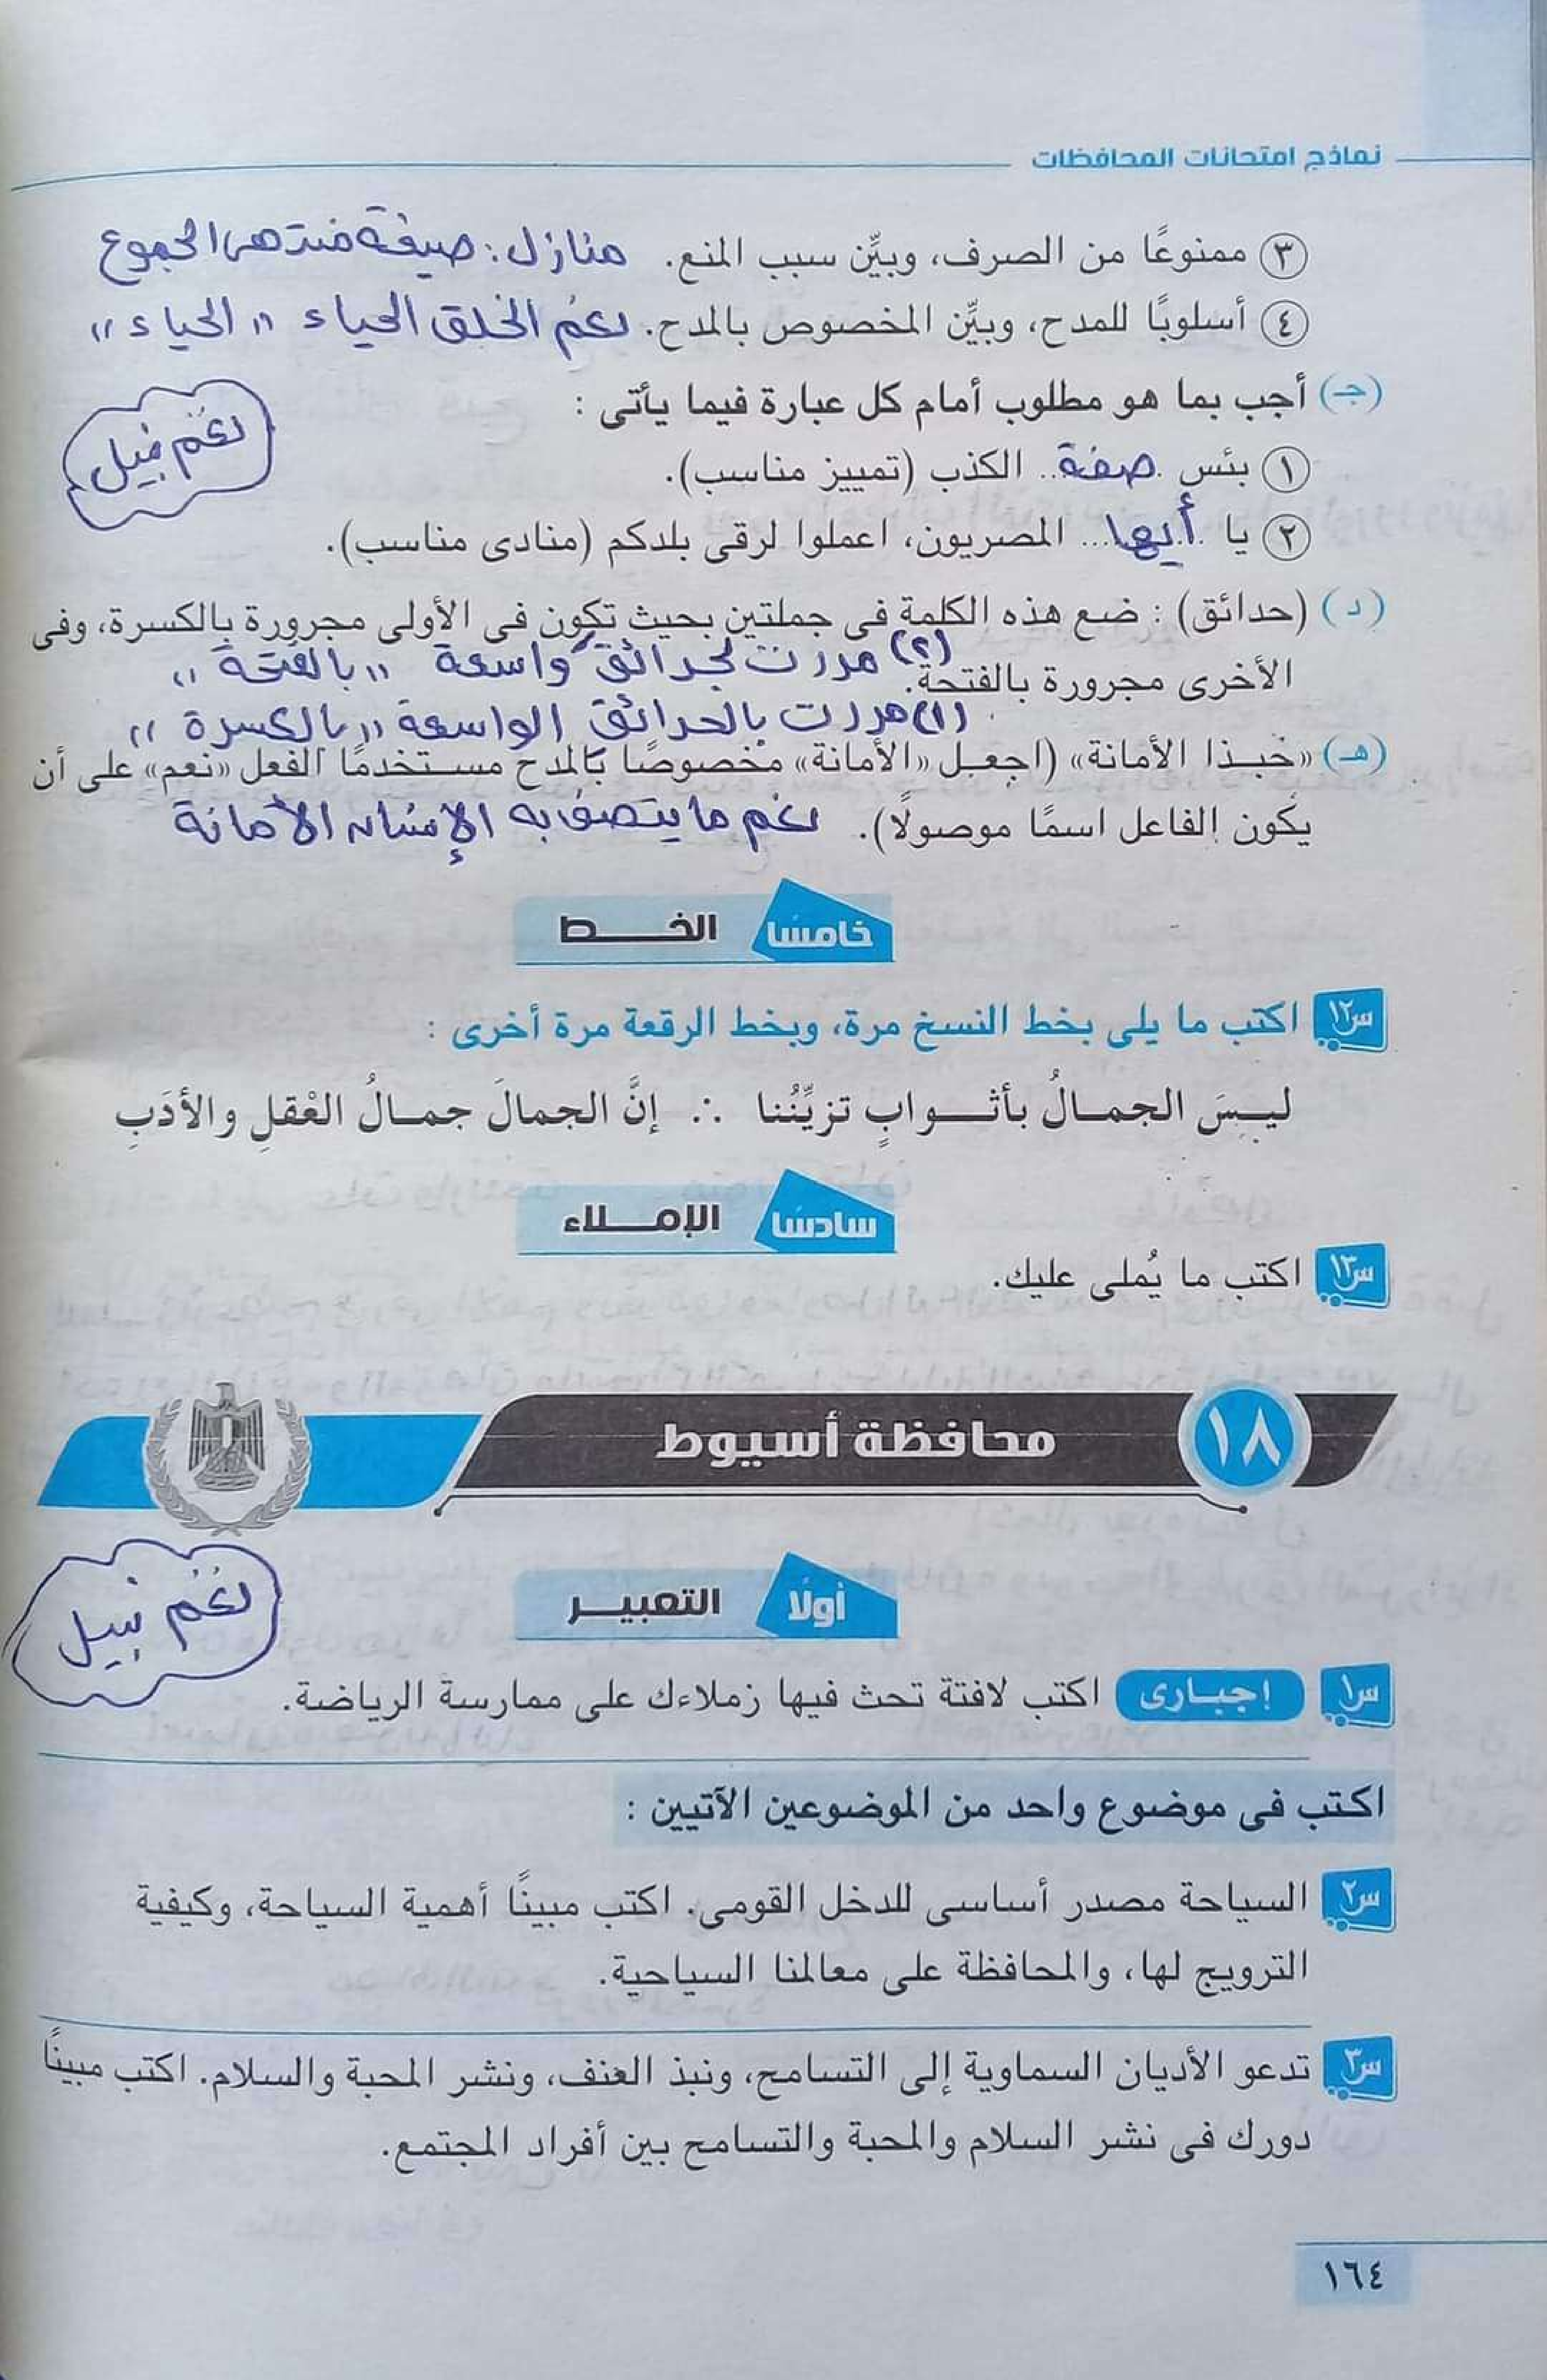 نماذج امتحانات المحافظات
٣ ممنوعًا من الصرف، وبيِّن سبب المنع. منازل : صيغة منتهى الجموع
٤ أسلوبًا للمدح، وبيِّن المخصوص بالمدح. نعم الخلق الحياء " الحياء "
(جـ) أجب بما هو مطلوب أمام كل عبارة فيما يأتى :
نغم نبيل
١ بئس .صفة.. الكذب (تمييز مناسب).
٢ يا .أيها... المصريون، اعملوا لرقى بلدكم (منادى مناسب).
(د) (حدائق) : ضع هذه الكلمة فى جملتين بحيث تكون فى الأولى مجرورة بالكسرة، وفى
الأخرى مجرورة بالفتحة. (٢) مررت بحدائقَ واسعة " بالفتحة "
(١) مررت بالحدائقِ الواسعة " بالكسرة "
(هـ) «حَبـذا الأمانة» (اجعـل «الأمانة» مخصوصًا بالمدح مستخدمًا الفعل «نعم» على أن
يكون الفاعل اسمًا موصولًا). نعم ما يتصف به الإنسان الأمانة
خامسًا الخـــط
س١٢ اكتب ما يلى بخط النسخ مرة، وبخط الرقعة مرة أخرى :
ليـسَ الجمـالُ بأثـــوابٍ تزيِّنُنا ∴ إنَّ الجمالَ جمـالُ العْقلِ والأدَبِ
سادسًا الإمـلاء
س١٣ اكتب ما يُملى عليك.
١٨ محافظة أسيوط
أولًا التعبيـر
نغم نبيل
س١ إجبـارى اكتب لافتة تحث فيها زملاءك على ممارسة الرياضة.
اكتب فى موضوع واحد من الموضوعين الآتيين :
س٢ السياحة مصدر أساسى للدخل القومى. اكتب مبينًا أهمية السياحة، وكيفية
الترويج لها، والمحافظة على معالمنا السياحية.
س٣ تدعو الأديان السماوية إلى التسامح، ونبذ العنف، ونشر المحبة والسلام. اكتب مبينًا
دورك فى نشر السلام والمحبة والتسامح بين أفراد المجتمع.
١٦٤